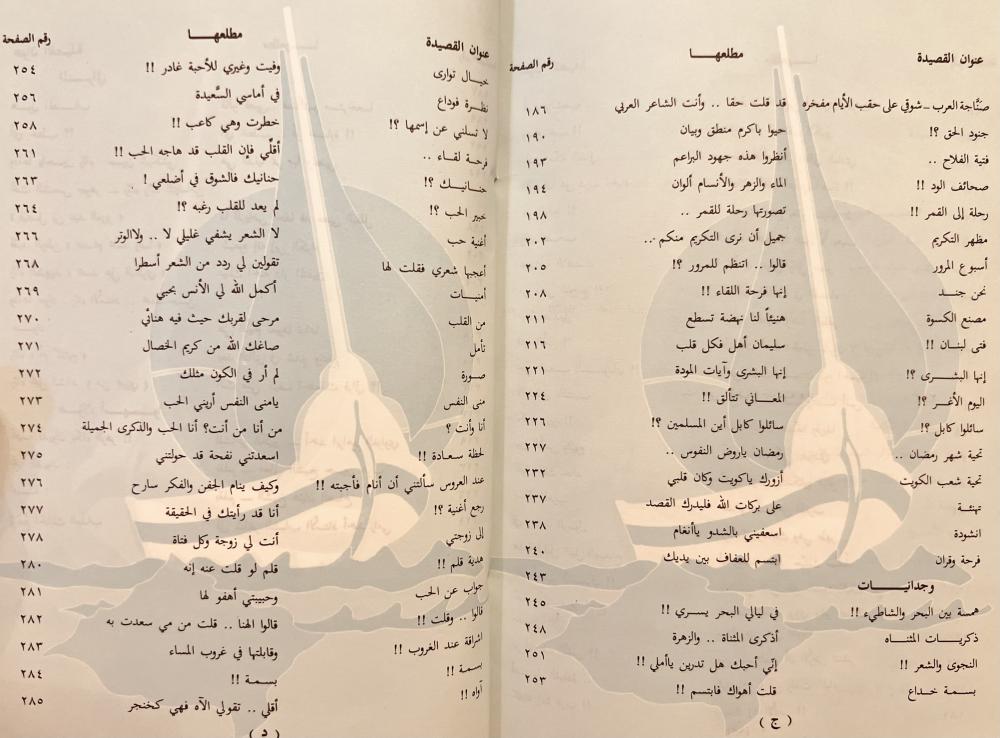 عنوان القصيدة مطلعهــا رقم الصفحة
صنّاجة العرب ــ شوقي على حقب الأيام مفخره قد قلت حقا .. وأنت الشاعر العربي ١٨٦
جنود الحق ؟! حيوا باكرم منطق وبيان ١٩٠
فتية الفلاح .. أنظروا هذه جهود البراعم ١٩٣
صحائف الود !! الماء والزهر والأنسام ألوان ١٩٤
رحلة إلى القمر !! تصورتها رحلة للقمر .. ١٩٨
مظهر التكريم جميل أن نرى التكريم منكم .. ٢٠٢
أسبوع المرور قالوا .. اتنظم للمرور ؟! ٢٠٥
نحن جنــد إنها فرحة اللقاء !! ٢٠٨
مصنع الكسوة هنيئاً لنا نهضة تسطع ٢١١
فتى لبنــان !! سليمان أهل فكل قلب ٢١٦
إنها البشــرى ؟! إنها البشرى وآيات المودة ٢٢١
اليوم الأغــر ؟! المعــاني تتألق !! ٢٢٤
سائلوا كابل ؟! سائلوا كابل أين المسلمين ؟! ٢٢٦
تحية شهر رمضان .. رمضان ياروض النفوس .. ٢٢٧
تحية شعب الكويت أزورك ياكويت وكان قلبي ٢٣٢
تهنئــة على بركات الله فليدرك القصد ٢٣٧
انشودة اسعفيني بالشدو ياأنغام ٢٣٨
فرحة وقران ابتسم للعفاف بين يديك ٢٤٠
وجدانيــات ٢٤٣
همسة بين البحر والشاطيء !! في ليالي البحر يسري !! ٢٤٥
ذكريــات المثنــاه أذكرى المثناة .. والزهرة ٢٤٨
النجوى والشعر !! إنّي أحبك هل تدرين ياأملي !! ٢٥١
بسمــة خــداع قلت أهواك فابتسم !! ٢٥٣
( ج )
عنوان القصيدة مطلعهــا رقم الصفحة
خيــال توارى وفيت وغيري للأحبة غادر !! ٢٥٤
نظــرة فوداع في أماسي السَّعيدة ٢٥٦
لا تسلني عن إسمها ؟! خطرت وهي كاعب !! ٢٥٨
فرحة لقــاء .. أقلّي فإن القلب قد هاجه الحب !! ٢٦١
حنــانيــك ؟! حنانيك فالشوق في أضلعي ! ٢٦٣
خبير الحب ؟! لم يعد للقلب رغبه ؟! ٢٦٤
أغنية حب لا الشعر يشفي غليلي لا .. ولاالوتر ٢٦٦
أعجبها شعري فقلت لها تقولين لي ردد من الشعر أسطرا ٢٦٨
أمنيــات أكمل الله لي الأنس بحبي ٢٦٩
من القلب مرحى لقربك حيث فيه هنائي ٢٧٠
تأمل صاغك الله من كريم الخصال ٢٧١
صــورة لم أر في الكون مثلك ٢٧٢
منى النفس يامنى النفس أريني الحب ٢٧٣
أنا وأنت ؟ من أنا من أنت؟ أنا الحب والذكرى الجميلة ٢٧٤
لحظة سعــادة !! اسعدتني نفحة قد حولتني ٢٧٥
عند العروس سألتني أن أنام فأجبته !! وكيف ينام الجفن والفكر سارح ٢٧٦
رجع أغنية ؟! أنا قد رأيتك في الحقيقة ٢٧٧
إلى زوجتي أنت لي زوجة وكل فتاة ٢٧٨
هدية قلم !! قلم لو قلت عنه إنه ٢٨٠
جواب عن الحب وحبيبتي أهفو لها ٢٨١
قالوا .. وقلت !! قالوا الهنا .. قلت من مي سعدت به ٢٨٢
اشراقة عند الغروب !! وقابلتها في غروب المساء ٢٨٣
بسمــة !! بسمــة !! ٢٨٤
آواه !! أقلي .. تقولي الآه فهي كخنجر ٢٨٥
( د )